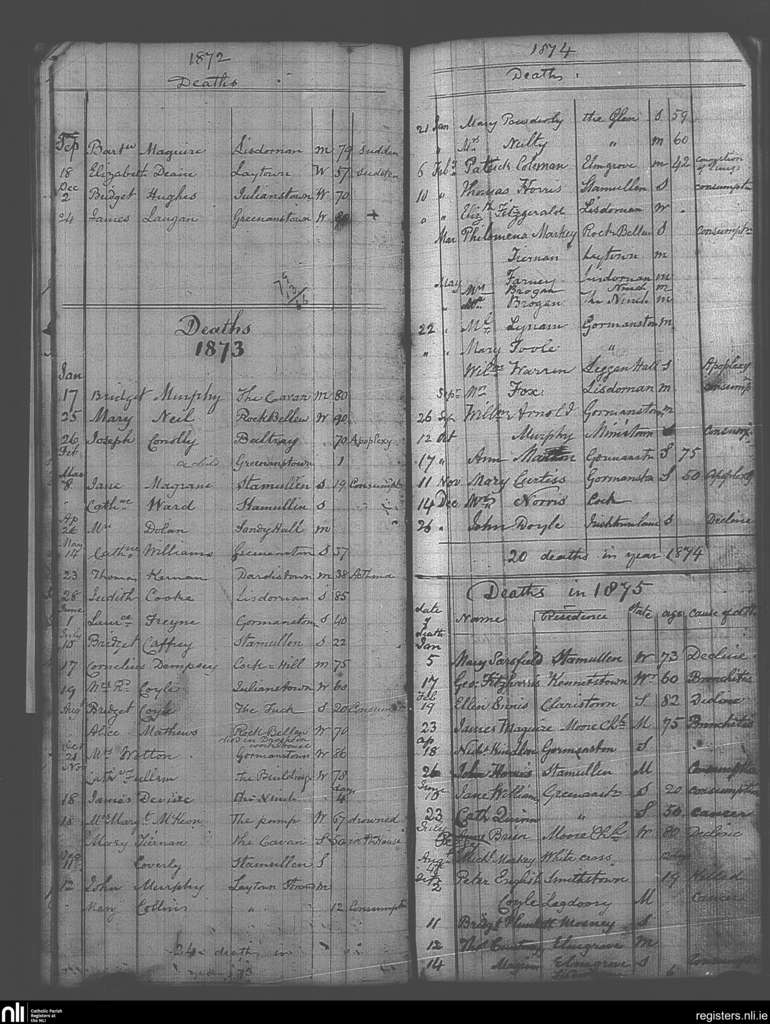 1872
Deaths
Sep Barw Maguire Lisdornan m 79 Sudden
18 Elizabeth Deane Laytown W 57 Sudden
Dec 2 Bridget Hughes Julianstown W 70
24 James Langan Greenanstown W
Deaths
1873
Jan
17 Bridget Murphy The Cavan m 80
25 Mary Neil RockBellew W 90
26 Joseph Conolly Beltray 70 Apoplexy
Feb a child Greenanstown 1
Mar
8 Jane Magrane Stamullen S 19 Consumpt
" Cathne Ward Stamullin S
Ap
26 Mrs Dolan Sandy Hall m
May
14 Cathne Williams Greenanston S 57
23 Thomas Kernan Dardistown m 38 Asthma
28 Judith Cooke Lisdornan S 85
June
1 Lawce Freyne Gormanston S 40
July
10 Bridget Caffrey Stamullen S 22
17 Cornelius Dempsey Cock Hill m 75
19 Mrs Rd Coyle Julianstown W 60
Augt Bridget Coyle The Tuck S 20 Consump
Alice Mathews Rock Bellew W 70
died in Drogheda workhouse
Oct
21 Mrs Wetton Gormanstown W 86
Nov
Cathe Fullam The Building W 78
18 James Devine The Ninch 4 days
18 Mrs Margt McKeon The pump W 67 drowned
Mary Tiernan The Cavan S 50 in Pr House
Coverly Stamullen S
12 John Murphy Laytown Strand m
" Mary Collins " 12 Consumpt
24 deaths in
1874
Deaths
21 Jan Mary Powderly the Glen S 59
" Mrs Neilty " m 60
6 Feb Patrick Coleman Elmgrove m 42 congestion of lungs
10 " Thomas Horris Stamullen S consumptn
" " Elizth Fitzgerald Lisdornan W
Mar Philomena Markey Rock Bellew S consumptn
Tiernan Laytown m
May Farney Lisdornan m
Mrs Brogan Ninch m
Mr Brogan The Ninch m
22 " Ml Lynam Gormanston m
" " Mary Toole "
Wilm Warren Leggan Hall S Apoplexy
Sept Mrs Fox Lisdornan m consump
26 Sep Willm Arnold Gormanstown
12 Oct Murphy Ministown S Consum
17 " Ann Gormansto S 75
11 Nov Mary Curtiss Gormansto S 50 Apoplexy
14 Dec Mrs Norris Cock
26 " John Boyle S Decline
20 deaths in year 1874
Deaths in 1875
date of death Name Residence State age cause of death
Jan
5 Mary Sarsfield Stamullen W 73 Decline
17 Geo. Fitzharris Kennetstown Wr 60 Bronchitis
Feb
19 Ellen Ennis Claristown S 82 Decline
23 James Maguire Moore Chh M 75 Bronchitis
Ap
18 Nichs Gormanston S
26 John Stamullen M Consumptn
June
10 Jane William Greenansto S 20 consumption
23 Cath Quinn " S 50 cancer
July
Brien Moore Chh W 80 Decline
Augt Michl Markey White cross
2 Peter English Smithstown 19 Killed
Coyle Legdoory M Cancer
11 Bridgt Plunkett Mosney S
12 Thos Courtney Elmgrove M
14 Elmgrove S
nli
Catholic Parish
Registers at
the NLI
registers.nli.ie